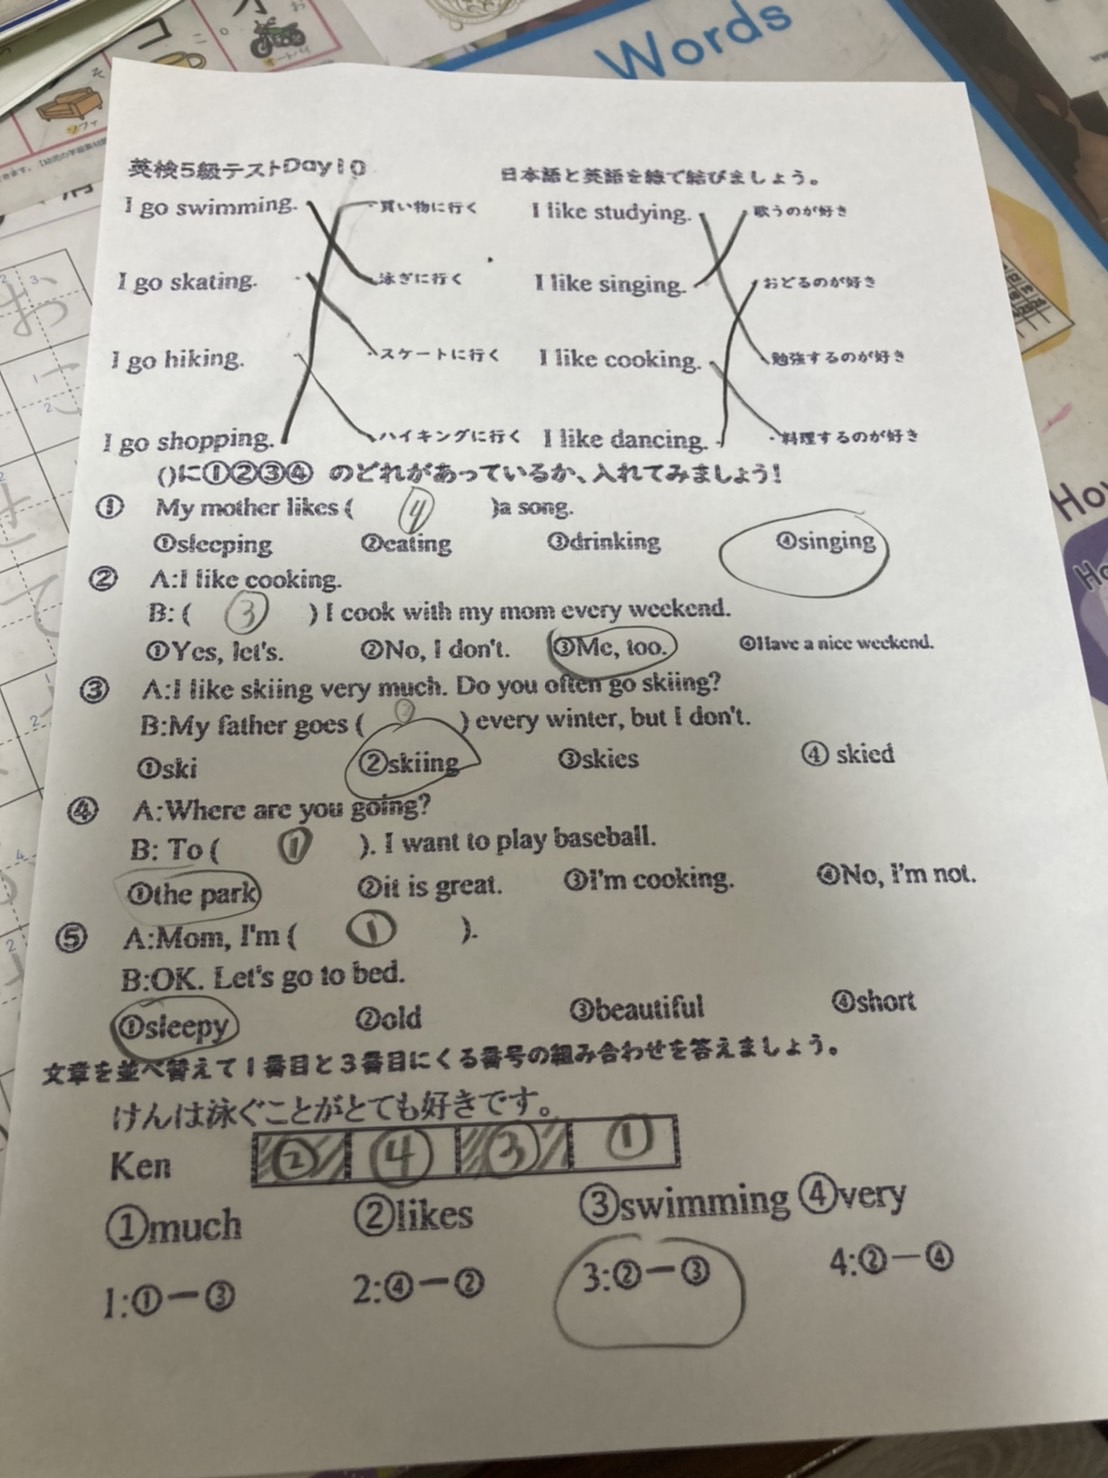 Words
コ
ソファ
英検5級テストDay10
日本語と英語を線で結びましょう。
I go swimming. 買い物に行く I like studying. 歌うのが好き
I go skating. 泳ぎに行く I like singing. おどるのが好き
I go hiking. スケートに行く I like cooking. 勉強するのが好き
I go shopping. ハイキングに行く I like dancing. 料理するのが好き
()に①②③④ のどれがあっているか、入れてみましょう!
① My mother likes ( 4 )a song.
①sleeping ②eating ③drinking ④singing
② A:I like cooking.
B: ( 3 ) I cook with my mom every weekend.
①Yes, let's. ②No, I don't. ③Me, too. ④Have a nice weekend.
③ A:I like skiing very much. Do you often go skiing?
B:My father goes ( 2 ) every winter, but I don't.
①ski ②skiing ③skies ④ skied
④ A:Where are you going?
B: To ( ① ). I want to play baseball.
①the park ②it is great. ③I'm cooking. ④No, I'm not.
⑤ A:Mom, I'm ( ① ).
B:OK. Let's go to bed.
①sleepy ②old ③beautiful ④short
文章を並べ替えて1番目と3番目にくる番号の組み合わせを答えましょう。
けんは泳ぐことがとても好きです。
Ken ② ④ ③ ①
①much ②likes ③swimming ④very
1:①ー③ 2:④ー② 3:②ー③ 4:②ー④
How